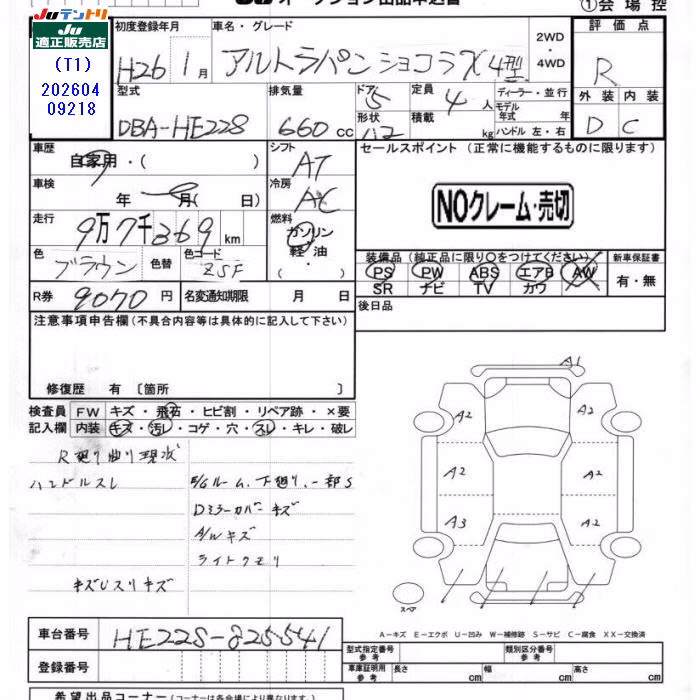 JUテントリ
JU適正販売店
(T1)
202604
09218
JU オークション出品申込書
①会場控
初度登録年月 H26 1月
車名・グレード アルトラパン ショコラX 4型
2WD・4WD
評価点 R
外装 内装
D C
型式 DBA-HE22S
排気量 660cc
ドア 5
形状
定員 4人
積載 kg
ディーラー・並行
モデル年式 年
ハンドル 左・右
車歴 自家用・( )
シフト AT
セールスポイント (正常に機能するものに限ります)
NOクレーム・売切
車検 年 月( 日)
冷房 AC
走行 9万7千369km
燃料 ガソリン 軽油・
色 ブラウン
色替
色コード ZSF
装備品(純正品に限り○をつけてください)
新車保証書
PS PW ABS エアB AW
SR ナビ TV カワ
有・無
R券 9070円
名変通知期限 月 日
後日品
注意事項申告欄(不具合内容等は具体的に記入して下さい)
修復歴 有 〔箇所 〕
検査員記入欄
FW キズ・飛石・ヒビ割・リペア跡・×要
内装 キズ・汚レ・コゲ・穴・スレ・キレ・破レ
R廻り曲り現状
ハンドルスレ
E/Gルーム、下廻り、一部S
Dミラーカバーキズ
A/Wキズ
ライトクモリ
キズUスリキズ
A1
A2 A2
A2 A2
A3 A2
スペア
A-キズ E-エクボ U-凹み W-補修跡 S-サビ C-腐食 XX-交換済
車台番号 HE22S-825541
登録番号
型式指定番号 参考
類別区分番号 参考
車庫証明用 参考
長さ cm
幅 cm
高さ cm
希望出品コーナー(コーナーは各会場により異なります)